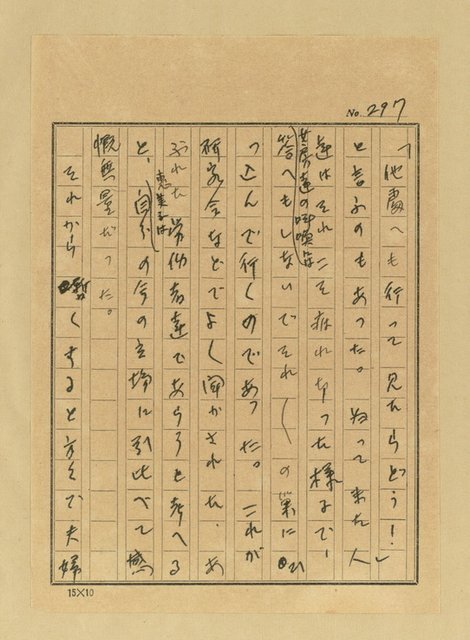 No. 297
「他處へも行って見たらどう！」
と言ふのもあった。歸って来た人
達はそれこそ疲れ切った様子で！
女房達の叫喚には
答へもしないでそれ〲の巣にひ
っ込んで行くのであった。これが
研究会などでよく聞かされた、あ
ぶれた労働者達であらうと考へる
恵美子は
と、自分の今の立場に引比べて感
慨無量だった。
それから暫くすると方々で夫婦
15×10